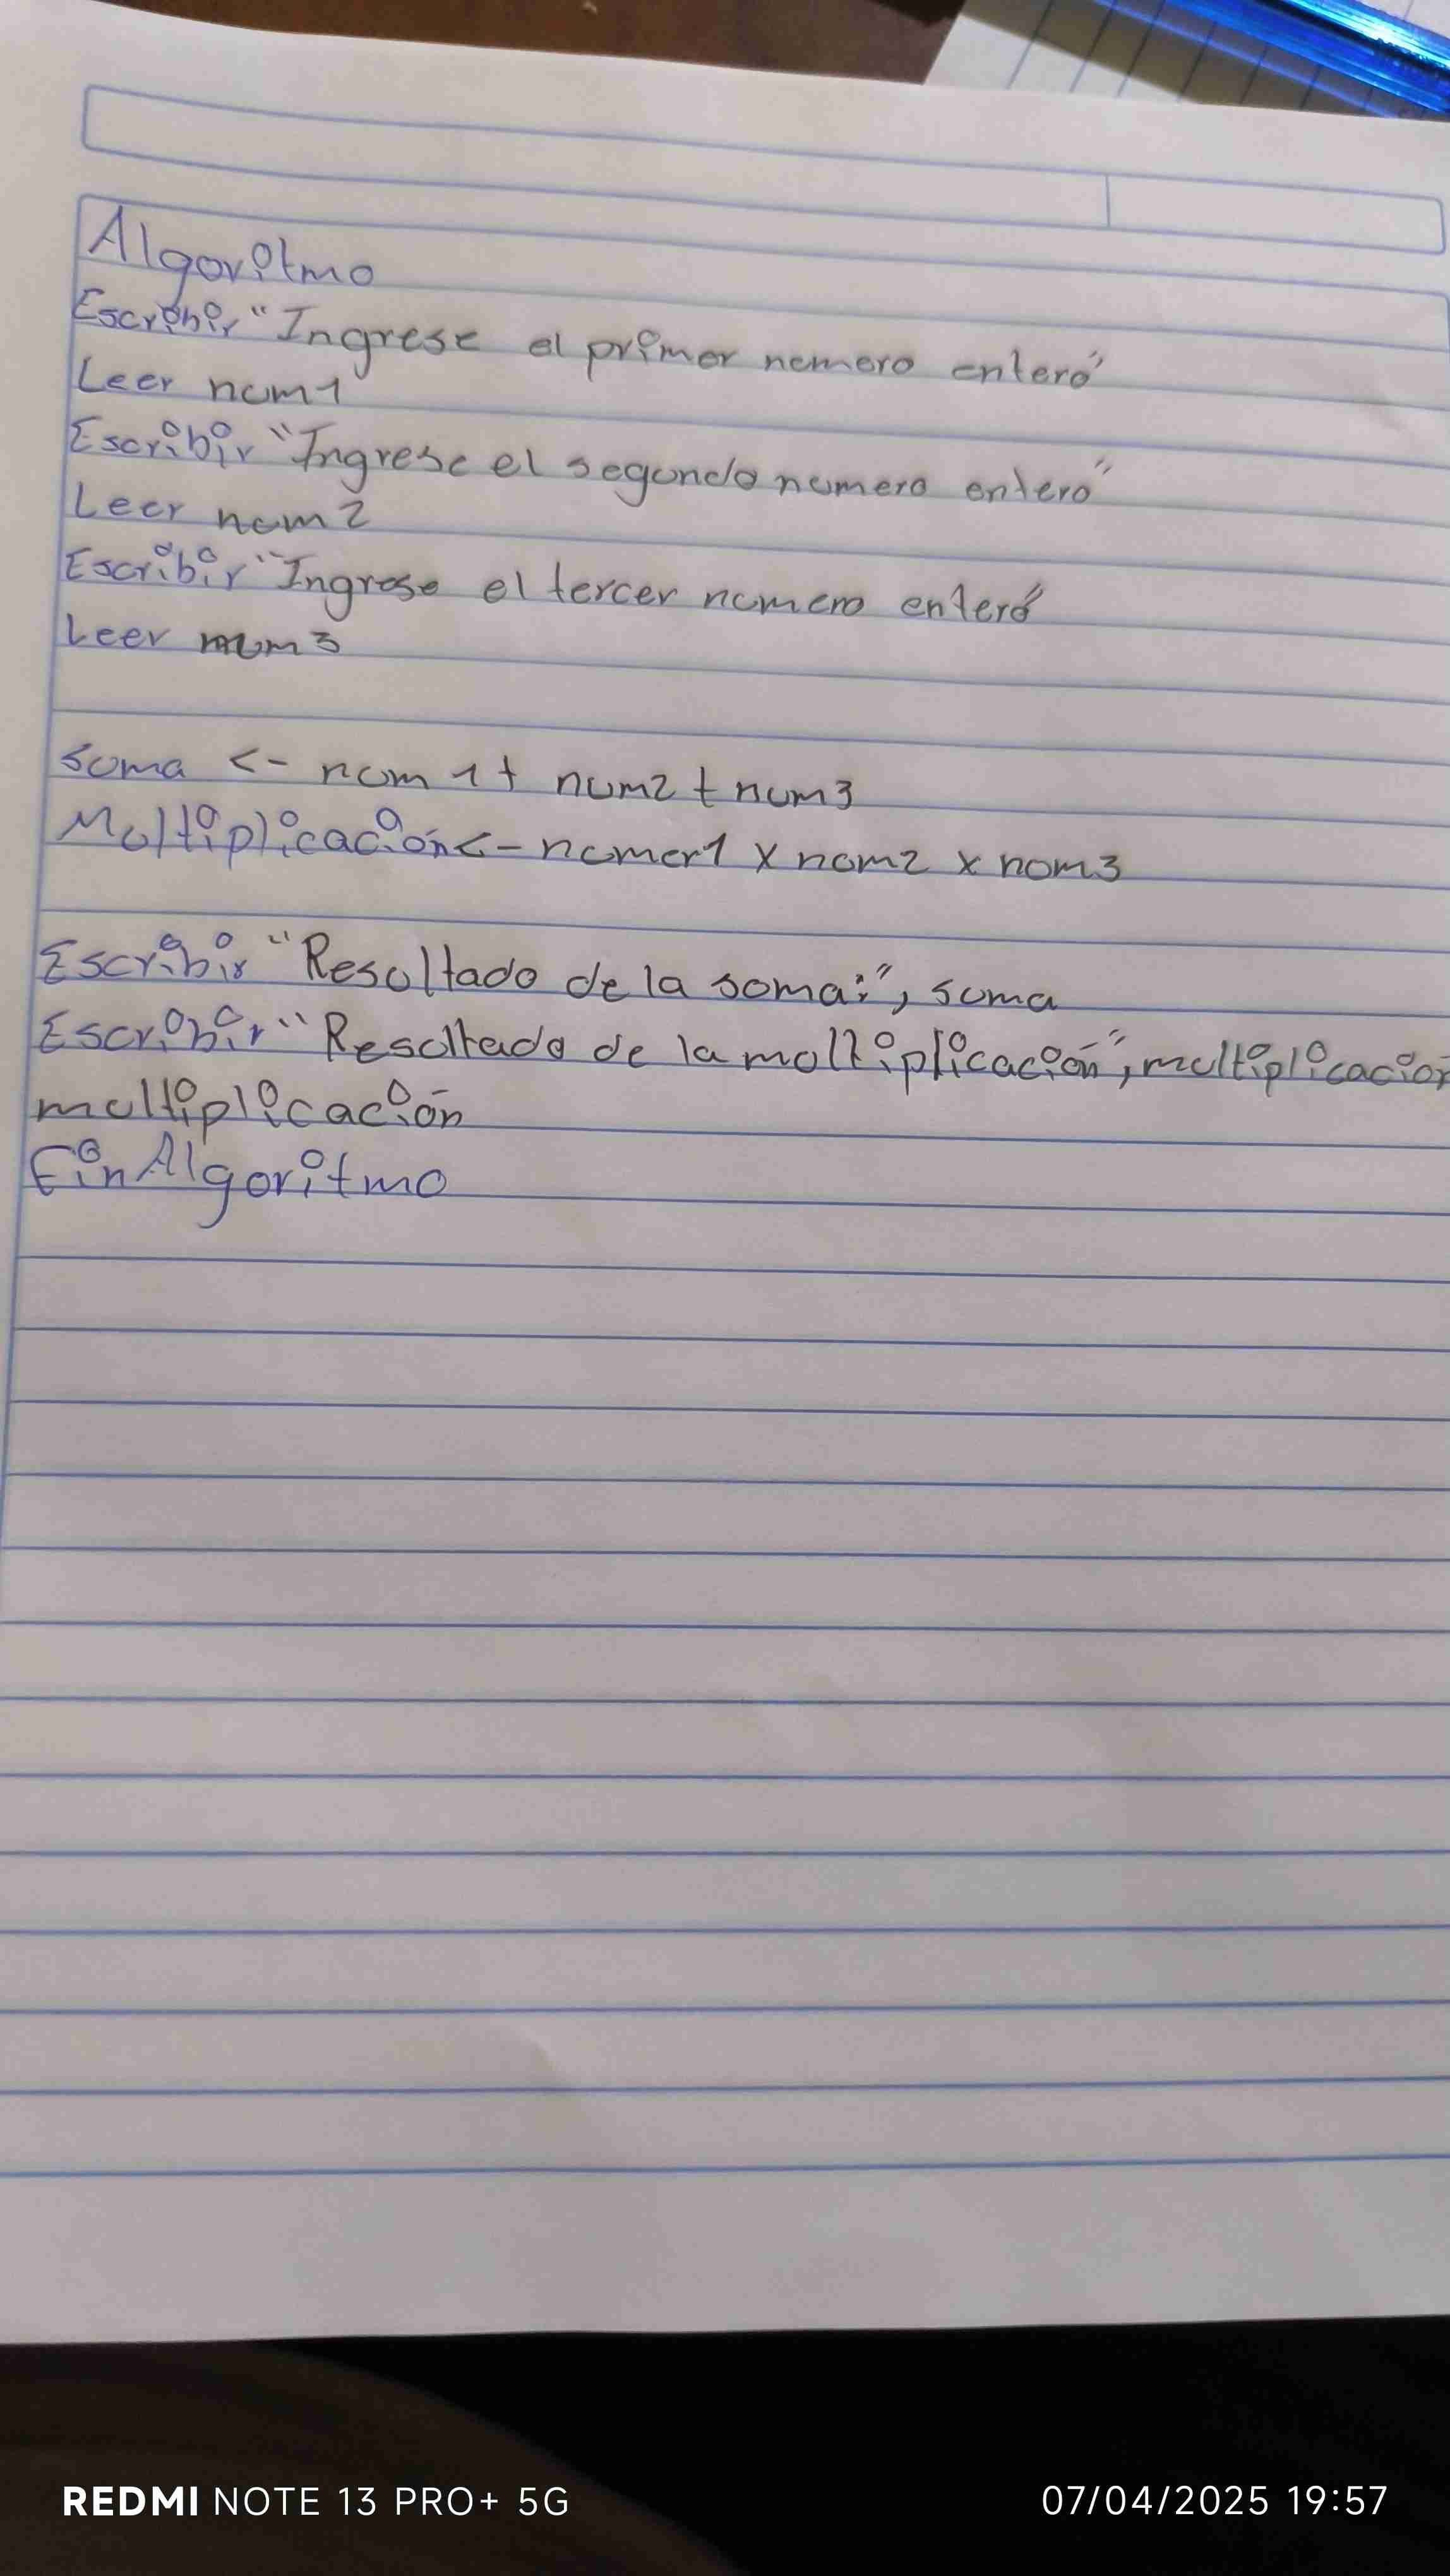 Algoritmo
Escribir "Ingrese el primer nemero entero"
Leer num1
Escribir "Ingrese el segundo numero entero"
Leer num2
Escribir "Ingrese el tercer numero entero"
Leer num3
suma <- num 1 + num2 + num3
Multiplicación <- numer1 x num2 x num3
Escribir "Resultado de la suma:", suma
Escribir "Resultado de la multiplicación", multiplicación
multiplicación
FinAlgoritmo
REDMI NOTE 13 PRO+ 5G
07/04/2025 19:57